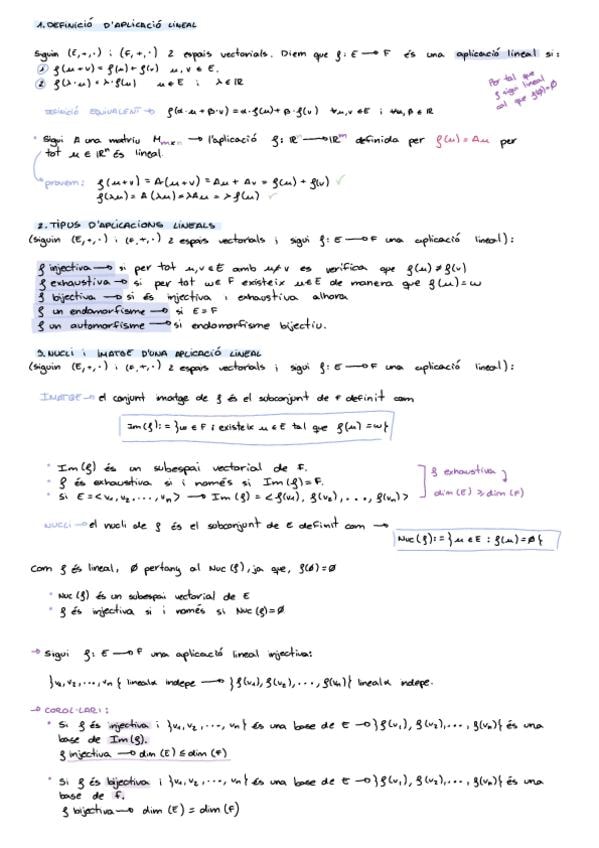 1. DEFINICIÓ D'APLICACIÓ LINEAL
Siguin (E,+,·) i (F,+,·) 2 espais vectorials. Diem que f: E → F és una aplicació lineal si:
① f(u+v) = f(u)+f(v) u,v ∈ E.
② f(λ·u) = λ·f(u) u ∈ E i λ ∈ ℝ
Per tal que
f sigui lineal
cal que f(0)=0
DEFINICIÓ EQUIVALENT → f(α·u+β·v)=α·f(u)+β·f(v) ∀u,v ∈ E i ∀α,β ∈ ℝ
• Sigui A una matriu Mmxn → l'aplicació f: ℝⁿ → ℝᵐ definida per f(u)=Au per
tot u ∈ ℝⁿ és lineal.
provem: f(u+v) = A(u+v) = Au + Av = f(u) + f(v) ✓
f(λu) = A(λu) = λAu = λf(u) ✓
2. TIPUS D'APLICACIONS LINEALS
(siguin (E,+,·) i (F,+,·) 2 espais vectorials i sigui f: E → F una aplicació lineal):
f injectiva → si per tot u,v ∈ E amb u≠v es verifica que f(u) ≠ f(v)
f exhaustiva → si per tot w ∈ F existeix u ∈ E de manera que f(u)=w
f bijectiva → si és injectiva i exhaustiva alhora
f un endomorfisme → si E = F
f un automorfisme → si endomorfisme bijectiu.
3. NUCLI i IMATGE D'UNA APLICACIÓ LINEAL
(siguin (E,+,·) i (F,+,·) 2 espais vectorials i sigui f: E → F una aplicació lineal):
IMATGE → el conjunt imatge de f és el subconjunt de F definit com
Im(f):= {w ∈ F i existeix u ∈ E tal que f(u) = w}
• Im(f) és un subespai vectorial de F.
• f és exhaustiva si i només si Im(f)=F.
• Si E=<v₁,v₂,...,vn> → Im(f) = <f(v₁), f(v₂), ..., f(vn)>
f exhaustiva
dim(E) ≥ dim(F)
NUCLI → el nucli de f és el subconjunt de E definit com →
Nuc(f):= {u ∈ E : f(u)=0}
Com f és lineal, 0 pertany al Nuc(f), ja que, f(0)=0
• Nuc(f) és un subespai vectorial de E
• f és injectiva si i només si Nuc(f)=0
→ Sigui f: E → F una aplicació lineal injectiva:
{v₁,v₂,...,vn} linealx indepe → {f(v₁), f(v₂), ..., f(vn)} linealx indepe.
→ COROL·LARI:
• Si f és injectiva i {v₁,v₂,...,vn} és una base de E → {f(v₁), f(v₂), ..., f(vn)} és una
base de Im(f).
f injectiva → dim(E) ≤ dim(F)
• Si f és bijectiva i {v₁,v₂,...,vn} és una base de E → {f(v₁), f(v₂), ..., f(vn)} és una
base de F.
f bijectiva → dim(E) = dim(F)